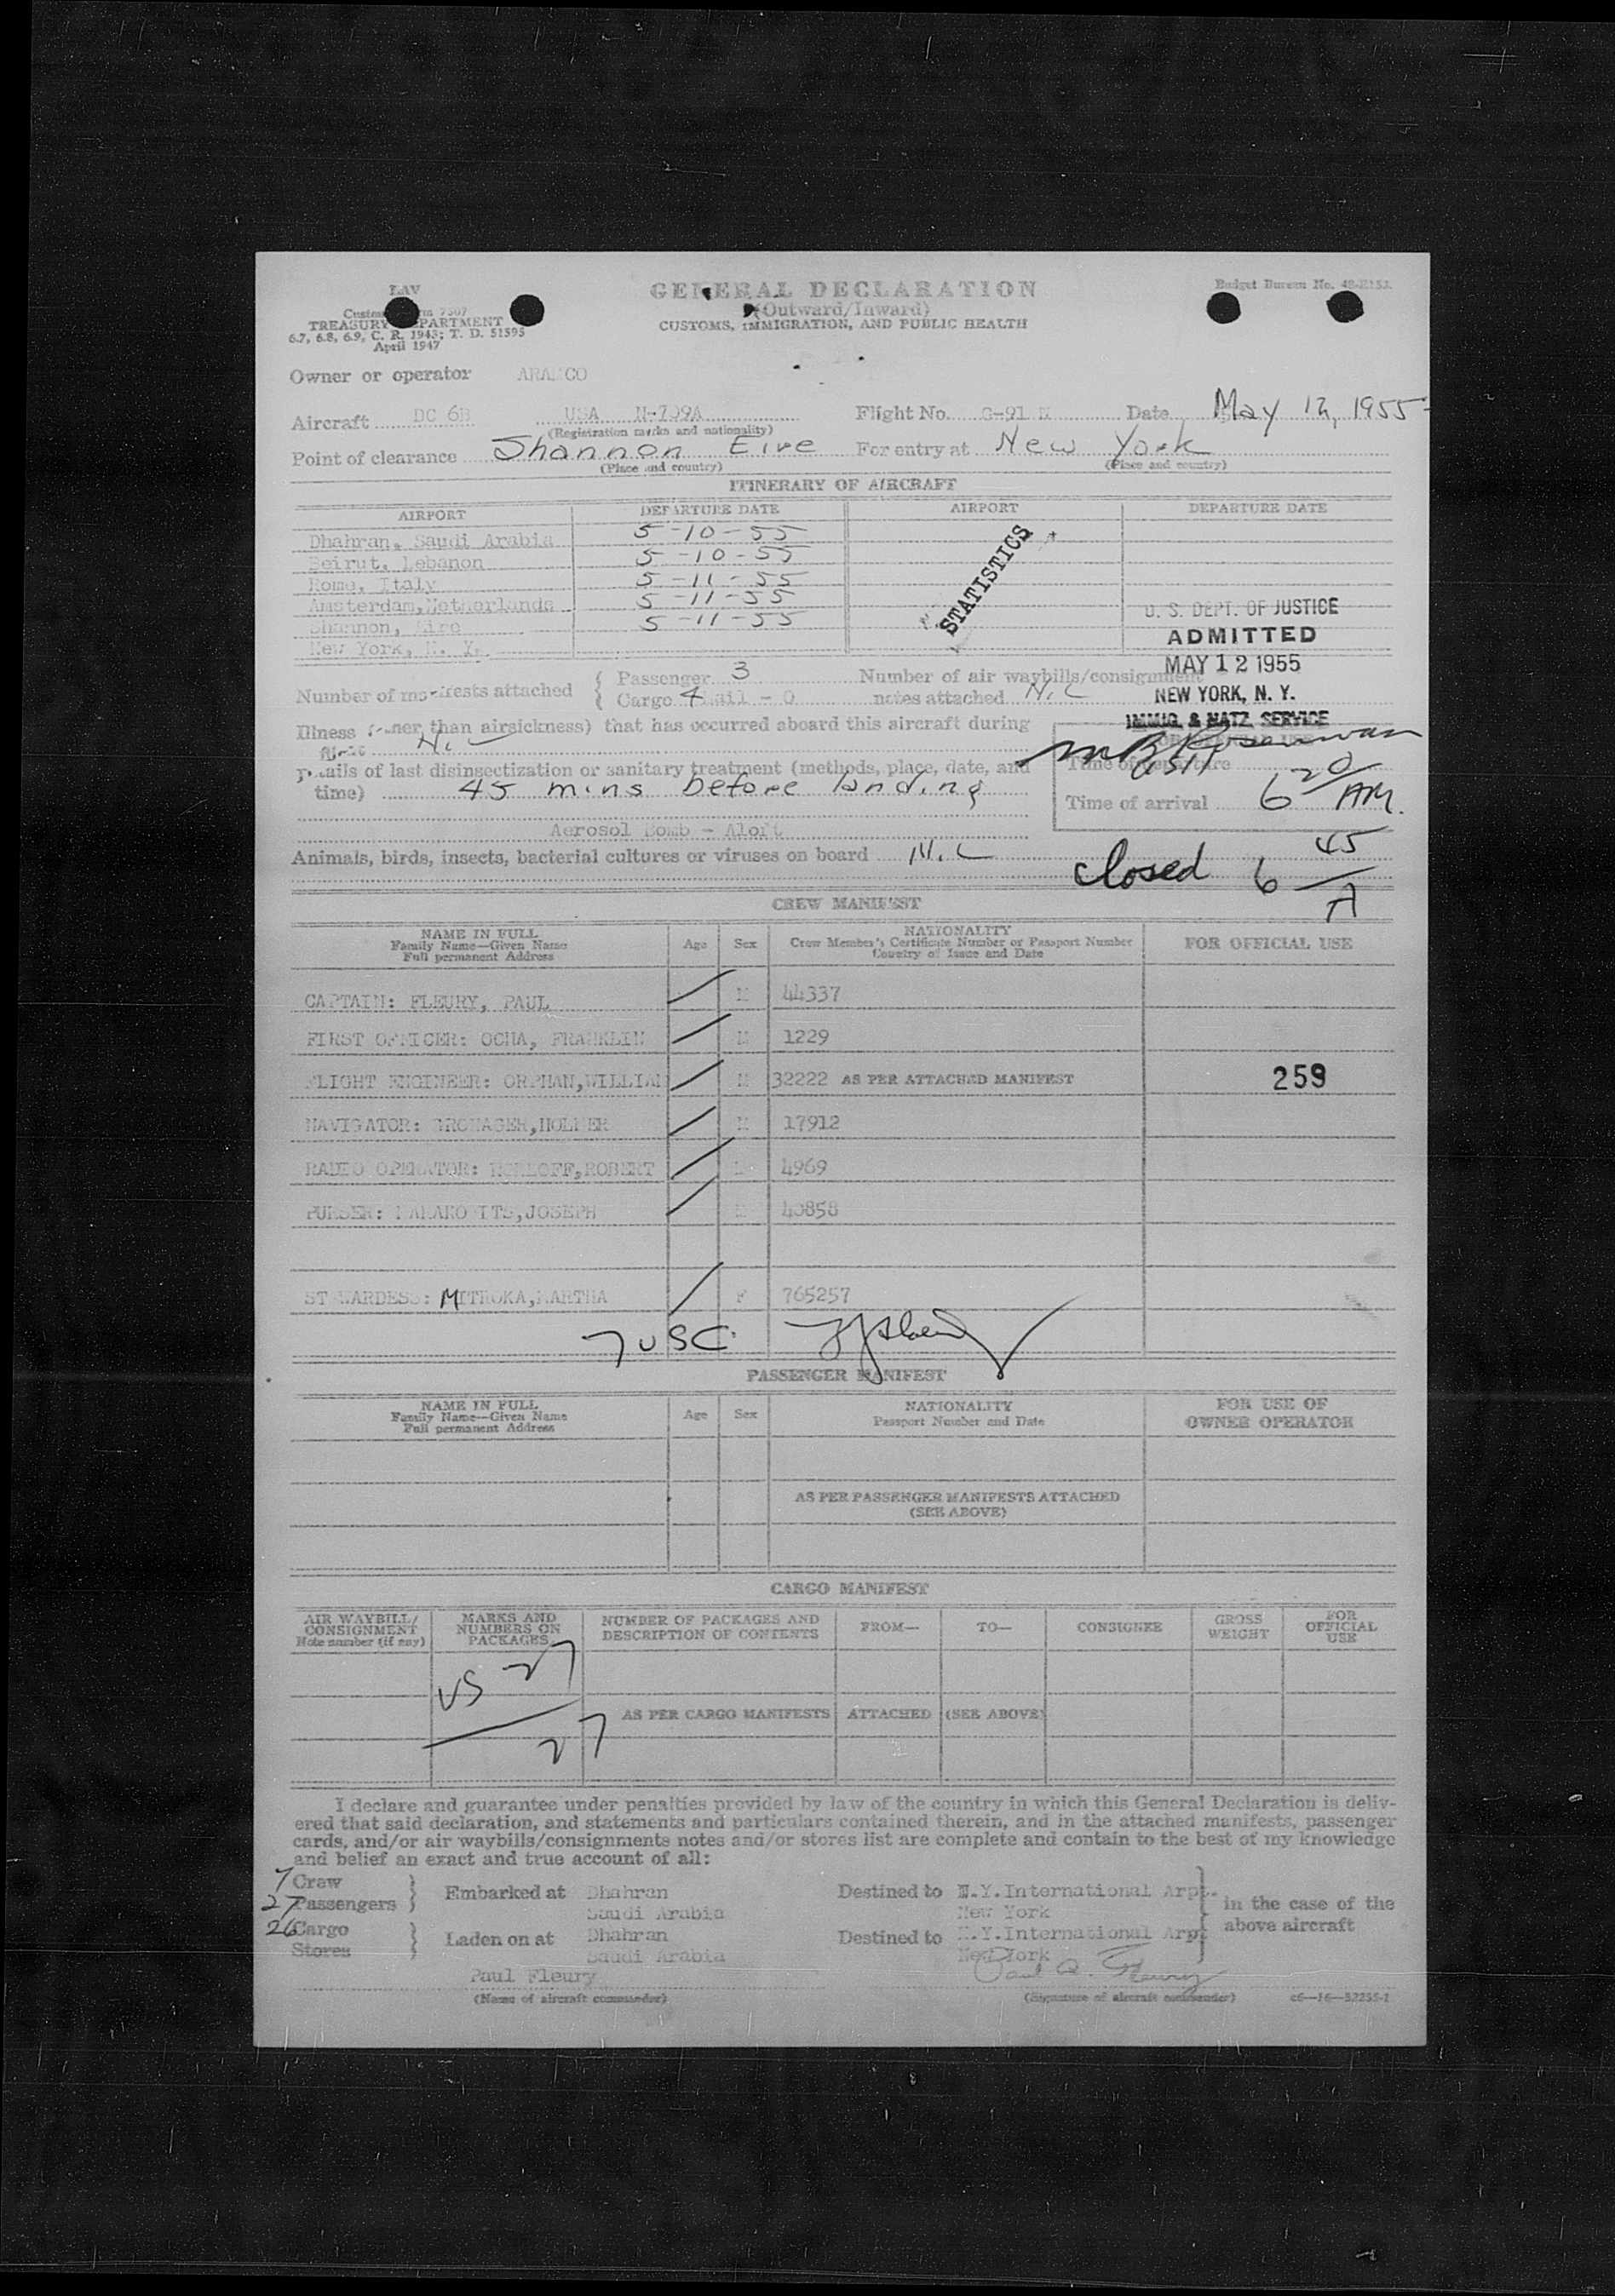 GENERAL DECLARATION
(Outward/Inward)
CUSTOMS, IMMIGRATION, AND PUBLIC HEALTH
Budget Bureau No.
TREASURY DEPARTMENT
6.7, 6.8, 6.9, C. R. 1943; T. D. 51595
April 1947
Owner or operator ARAMCO
Aircraft DC 6B USA N-709A Flight No. Date May 12, 1955
(Registration marks and nationality)
Point of clearance Shannon Eire For entry at New York
(Place and country) (Place and country)
ITINERARY OF AIRCRAFT
AIRPORT DEPARTURE DATE AIRPORT DEPARTURE DATE
Dhahran, Saudi Arabia 5-10-55
Beirut, Lebanon 5-10-55
Rome, Italy 5-11-55
Amsterdam, Netherlands 5-11-55
Shannon, Eire 5-11-55
New York, N. Y.
STATISTICS
U. S. DEPT. OF JUSTICE
ADMITTED
MAY 12 1955
NEW YORK, N. Y.
IMMIG. & NATZ. SERVICE
Number of manifests attached { Passenger 3 Number of air waybills/consignment
Cargo 4 Mail - 0 notes attached Nil
Illness (other than airsickness) that has occurred aboard this aircraft during
flight Nil
Details of last disinsectization or sanitary treatment (methods, place, date, and
time) 45 mins before landing
Aerosol Bomb - Aloft
Time of departure
Time of arrival 6 20/AM.
Animals, birds, insects, bacterial cultures or viruses on board Nil
closed 6 45/A
CREW MANIFEST
NAME IN FULL Age Sex NATIONALITY FOR OFFICIAL USE
Family Name—Given Name Crew Member's Certificate Number or Passport Number
Full permanent Address Country of Issue and Date
CAPTAIN: FLEURY, PAUL M 44337
FIRST OFFICER: OCHA, FRANKLIN M 1229
FLIGHT ENGINEER: ORPHAN,WILLIAM M 32222 AS PER ATTACHED MANIFEST 259
NAVIGATOR: M 17912
RADIO OPERATOR: ROBERT M 4969
PURSER: JOSEPH M 40858
STEWARDESS: MITROKA,MARTHA F 765257
7 USC
PASSENGER MANIFEST
NAME IN FULL Age Sex NATIONALITY FOR USE OF
Family Name—Given Name Passport Number and Date OWNER OPERATOR
Full permanent Address
AS PER PASSENGER MANIFESTS ATTACHED
(SEE ABOVE)
CARGO MANIFEST
AIR WAYBILL/ MARKS AND NUMBER OF PACKAGES AND FROM— TO— CONSIGNEE GROSS FOR
CONSIGNMENT NUMBERS ON DESCRIPTION OF CONTENTS WEIGHT OFFICIAL
Note number (if any) PACKAGES USE
US 27
AS PER CARGO MANIFESTS ATTACHED (SEE ABOVE)
27
I declare and guarantee under penalties provided by law of the country in which this General Declaration is deliv-
ered that said declaration, and statements and particulars contained therein, and in the attached manifests, passenger
cards, and/or air waybills/consignments notes and/or stores list are complete and contain to the best of my knowledge
and belief an exact and true account of all:
7 Crew } Embarked at Dhahran Destined to N.Y.International Arpt. } in the case of the
27 Passengers Saudi Arabia New York above aircraft
26 Cargo } Laden on at Dhahran Destined to N.Y.International Arpt
Stores Saudi Arabia New York
Paul Fleury Paul Fleury
(Name of aircraft commander) (Signature of aircraft commander) c6—16—52255-1